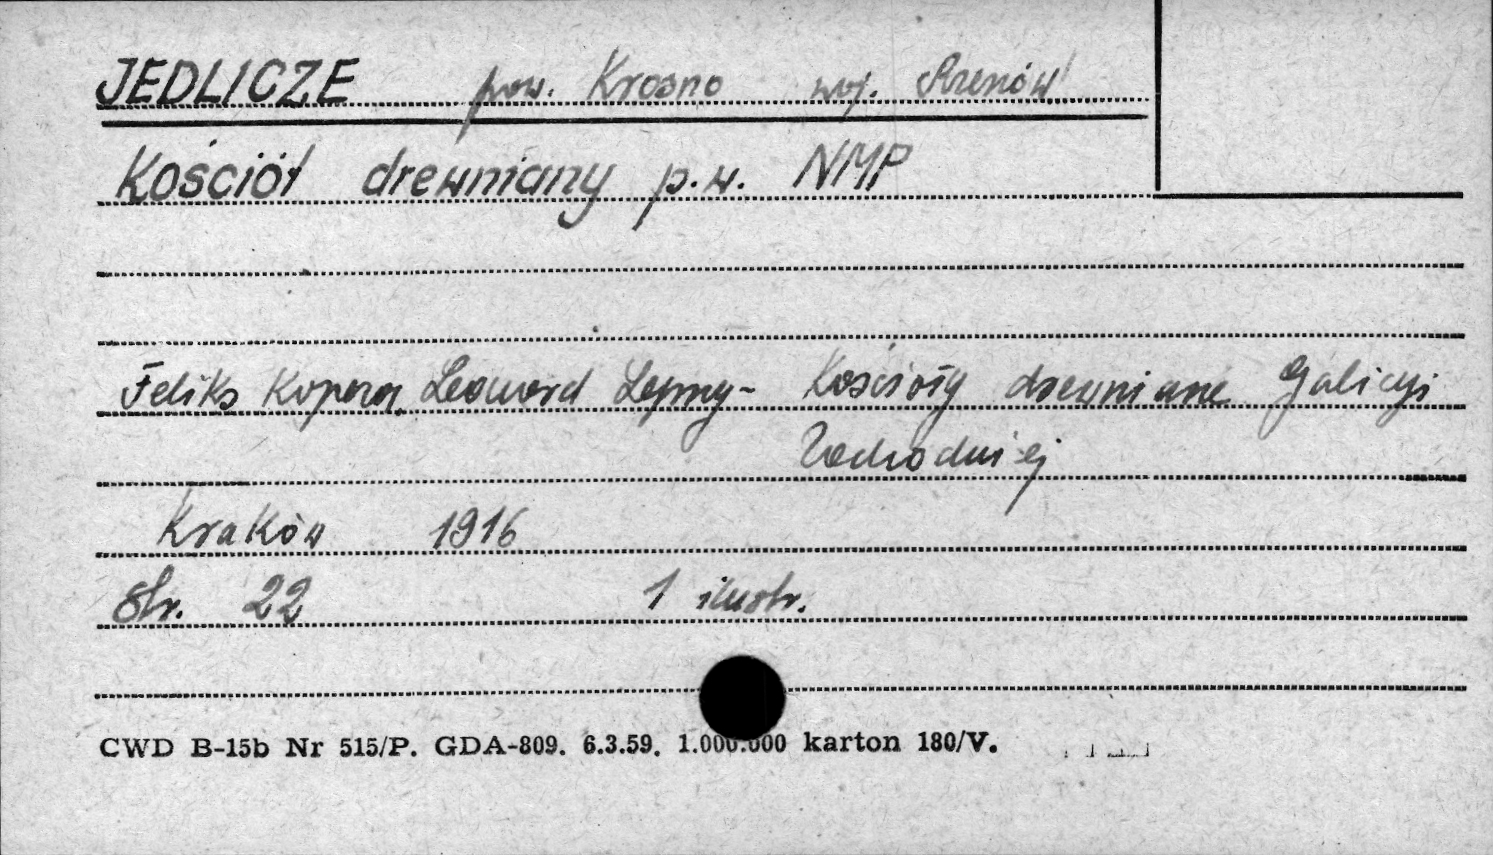 JEDLICZE pow. Krosno woj. Rzeszów
Kościół drewniany p.w. NMP
Feliks Kopera, Leonard Lepszy - Kościoły drewniane Galicyi
Zachodniej
Kraków 1916
Str. 22 1 ilustr.
CWD B-15b Nr 515/P. GDA-809. 6.3.59. 1.000.000 karton 180/V.